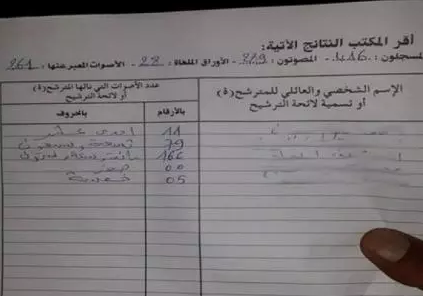 أقر المكتب النتائج الآتية:
المسجلون: 416 - المصوتون: 289 - الأوراق الملغاة: 28 - الأصوات المعبر عنها: 261
الإسم الشخصي والعائلي للمترشح(ة) أو تسمية لائحة الترشيح
عدد الأصوات التي نالها المترشح(ة) أو لائحة الترشيح
بالأرقام
بالحروف
11 احدى عشر
79 تسعة وسبعون
166
00 صفر
05 خمسة